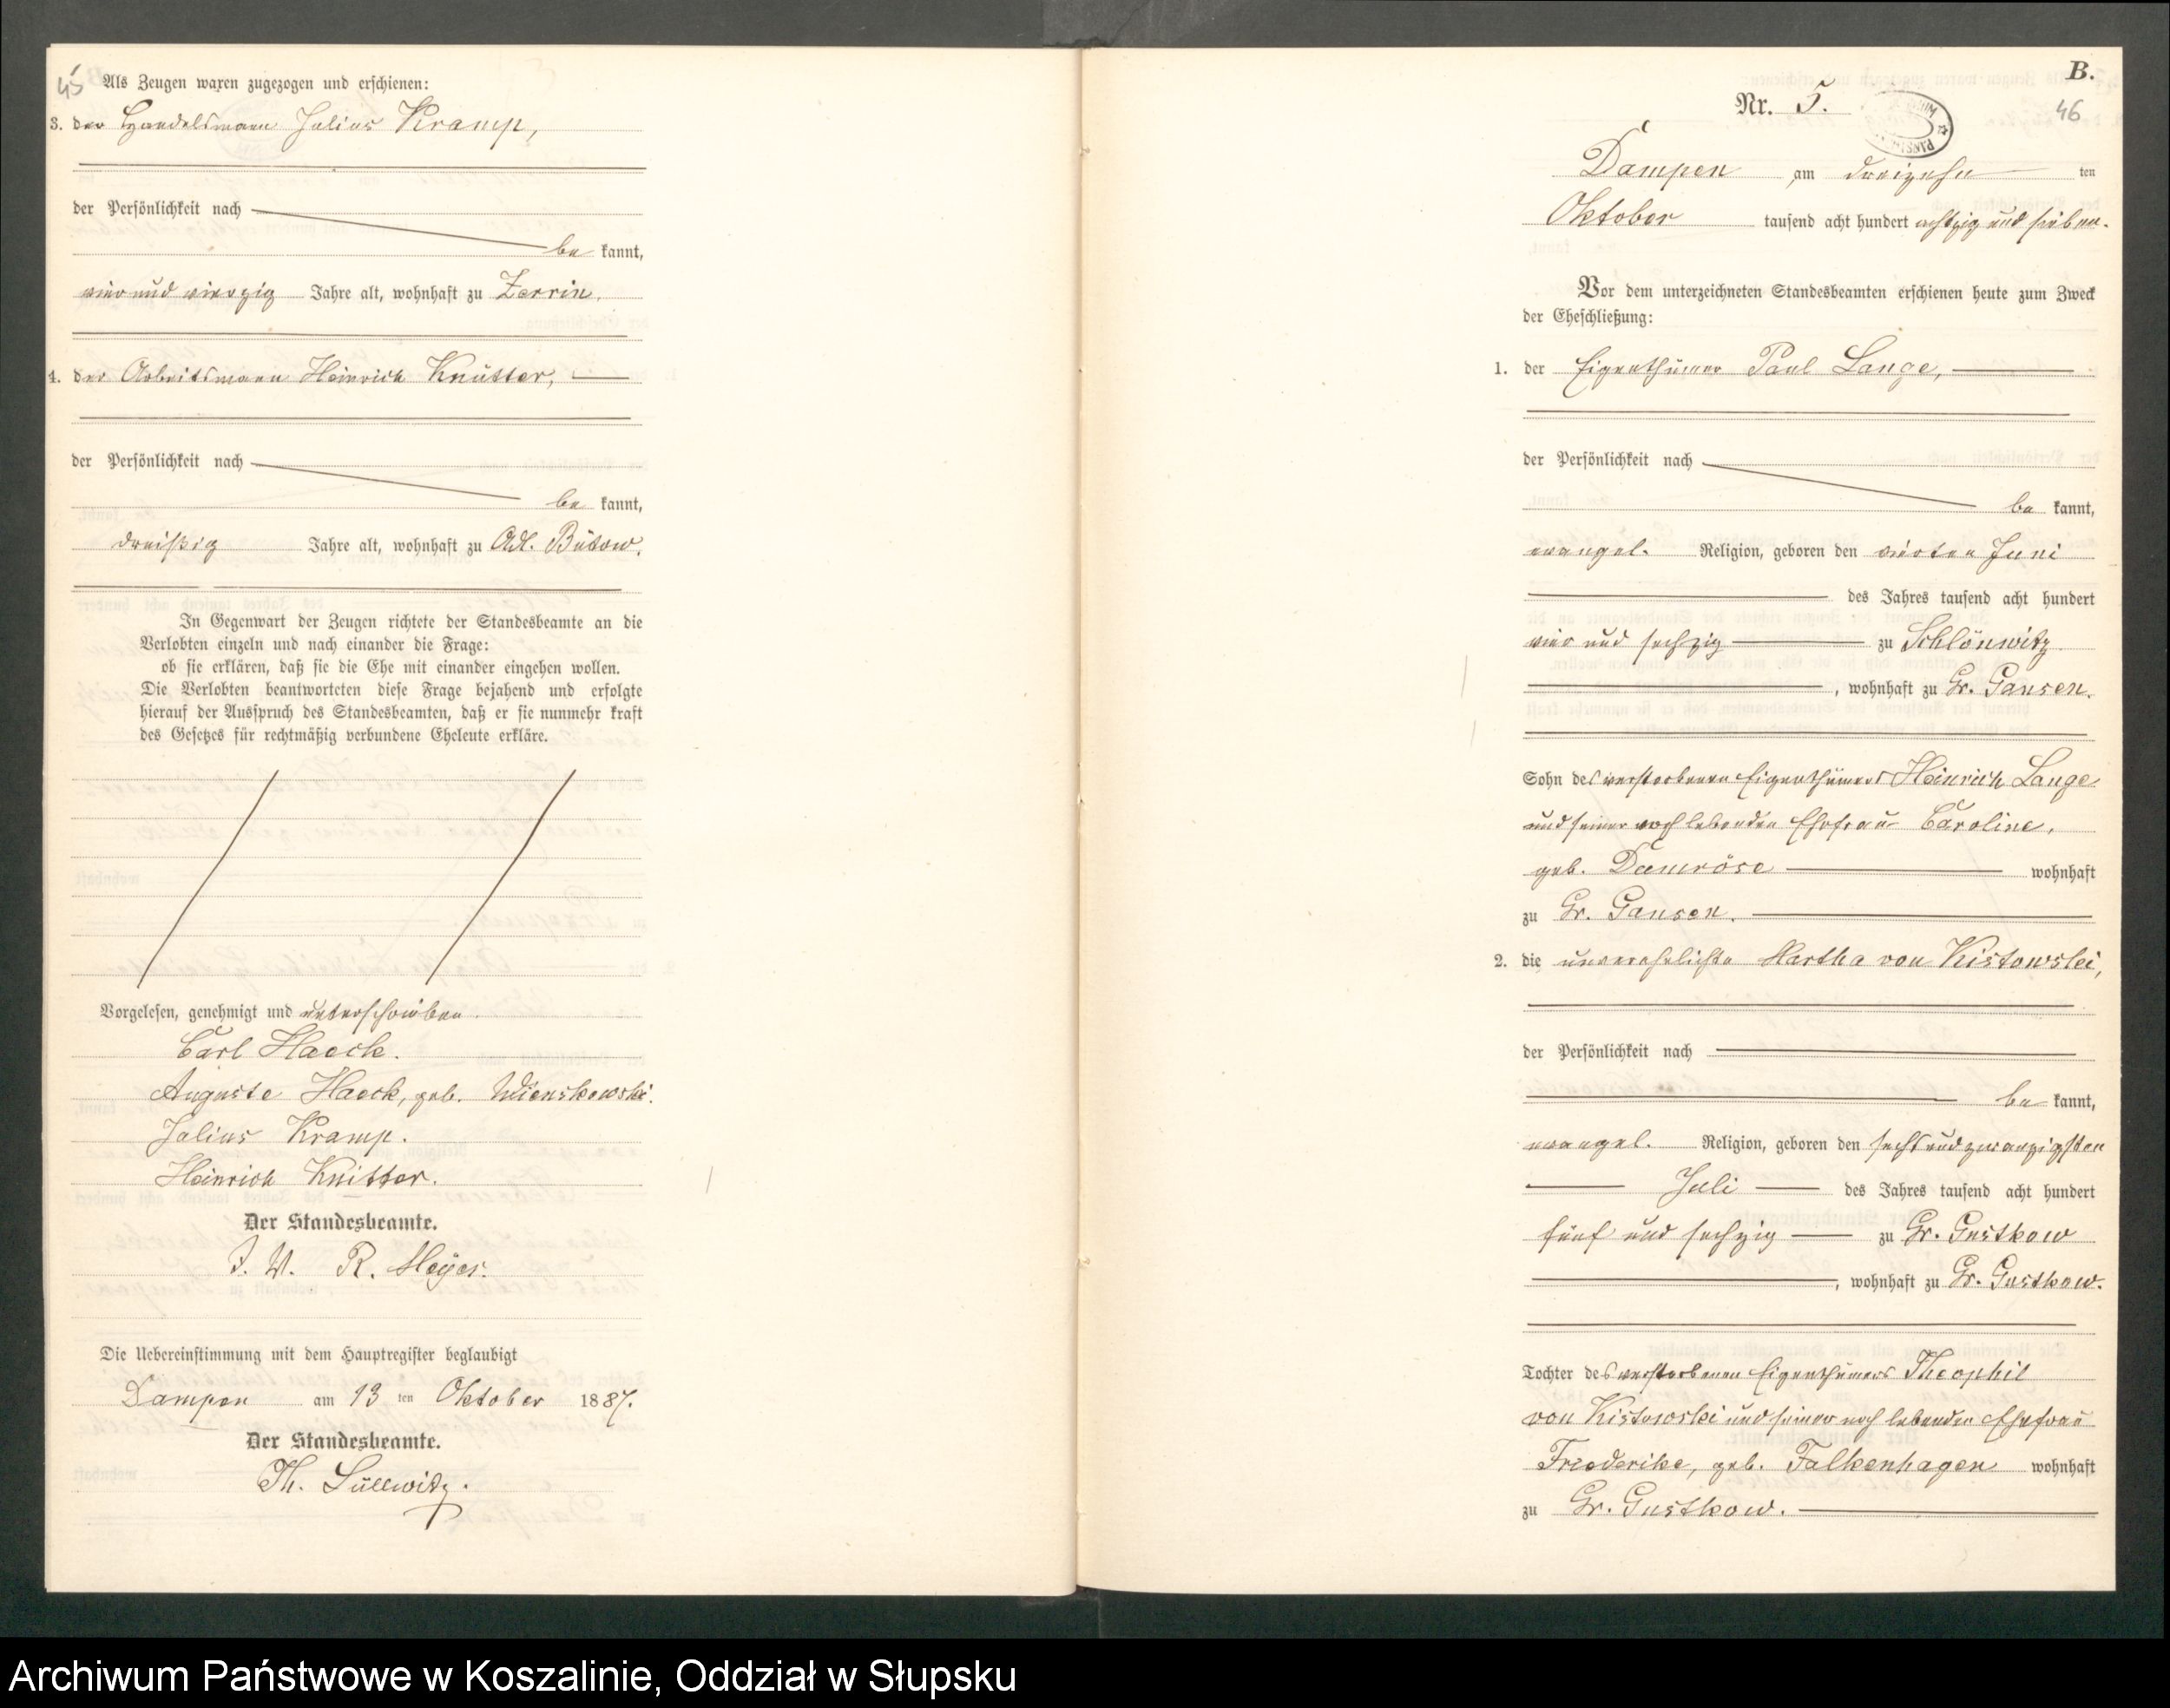 45
Als Zeugen waren zugezogen und erschienen:
3. der Handelsmann Julius Kramp,
der Persönlichkeit nach
be kannt,
vier und vierzig Jahre alt, wohnhaft zu Zerrin.
4. der Arbeitsmann Heinrich Knütter,
der Persönlichkeit nach
be kannt,
dreißig Jahre alt, wohnhaft zu Adl. Bütow.
In Gegenwart der Zeugen richtete der Standesbeamte an die
Verlobten einzeln und nach einander die Frage:
ob sie erklären, daß sie die Ehe mit einander eingehen wollen.
Die Verlobten beantworteten diese Frage bejahend und erfolgte
hierauf der Ausspruch des Standesbeamten, daß er sie nunmehr kraft
des Gesetzes für rechtmäßig verbundene Eheleute erkläre.
Vorgelesen, genehmigt und unterschrieben.
Carl Haeck.
Auguste Haeck, geb. Wienskowski.
Julius Kramp.
Heinrich Knitter.
Der Standesbeamte.
I. V. R. Meyer.
Die Uebereinstimmung mit dem Hauptregister beglaubigt
Dampen am 13 ten Oktober 1887.
Der Standesbeamte.
Th. Süllwitz.
B.
Nr. 5.
46
Dampen am dreizehn ten
Oktober tausend acht hundert achtzig und sieben.
Vor dem unterzeichneten Standesbeamten erschienen heute zum Zweck
der Eheschließung:
1. der Eigenthümer Paul Lange,
der Persönlichkeit nach
be kannt,
evangel. Religion, geboren den vierten Juni
des Jahres tausend acht hundert
vier und sechzig zu Schlönwitz
, wohnhaft zu Gr. Gansen.
Sohn des verstorbenen Eigenthümers Heinrich Lange
und seiner noch lebenden Ehefrau Caroline,
geb. Damröse wohnhaft
zu Gr. Gansen.
2. die unverehelichte Martha von Kistowski,
der Persönlichkeit nach
be kannt,
evangel. Religion, geboren den sechs und zwanzigsten
Juli des Jahres tausend acht hundert
fünf und sechzig zu Gr. Gustkow
, wohnhaft zu Gr. Gustkow.
Tochter des verstorbenen Eigenthümers Theophil
von Kistowski und seiner noch lebenden Ehefrau
Friederike, geb. Falkenhagen wohnhaft
zu Gr. Gustkow.
Archiwum Państwowe w Koszalinie, Oddział w Słupsku